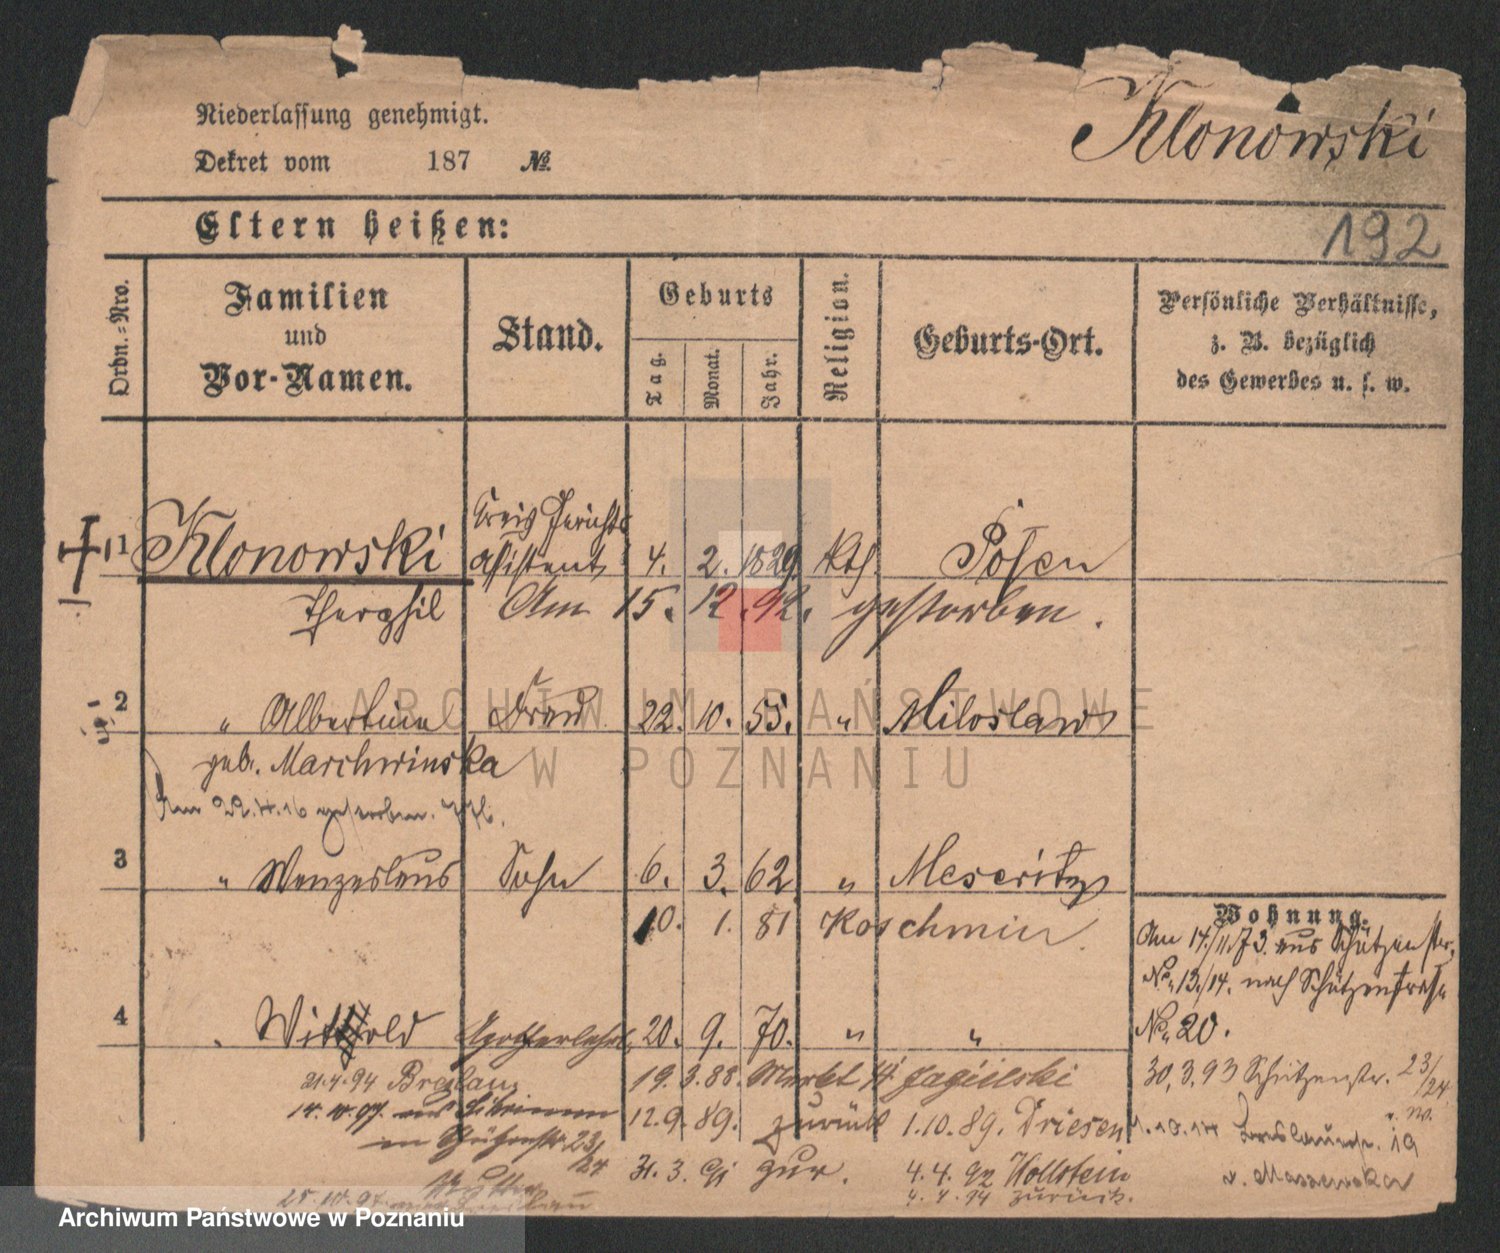 Niederlassung genehmigt.
Klonowski
Dekret vom 187 №
Eltern heißen:
192
Ordn.=Nro.
Familien
und
Vor-Namen.
Stand.
Geburts
Tag.
Monat.
Jahr.
Religion.
Geburts-Ort.
Persönliche Verhältnisse,
z. B. bezüglich
des Gewerbes u. s. w.
Kreis Gerichts
1 Klonowski Assistent 4. 2. 1829. kth. Posen
Theophil Am 15. 12. 92. gestorben.
2 " Albertine Frau 22. 10. 55. " Miloslaw
geb. Marchwinska
Am 22. 4. 16 gestorben.
3 " Wenzeslaus Sohn 6. 3. 62 " Meseritz
10. 1. 81 Koschmin.
Wohnung.
Am 14./11.73. aus Schützenstr.
No. 13./14. nach Schützenstraße
No. 20.
4 Wittold 20. 9. 70. " "
21.4.94 Breslau 19. 3. 88. Markt Jagielski
30.3.93 Schützenstr. 23/24
12. 9. 89. zurück 1.10.89. Driesen
31. 3. 91 zur. 4.4.92 Hollstein
4.4.94 zurück.
ARCHIWUM PAŃSTWOWE
W POZNANIU
Archiwum Państwowe w Poznaniu